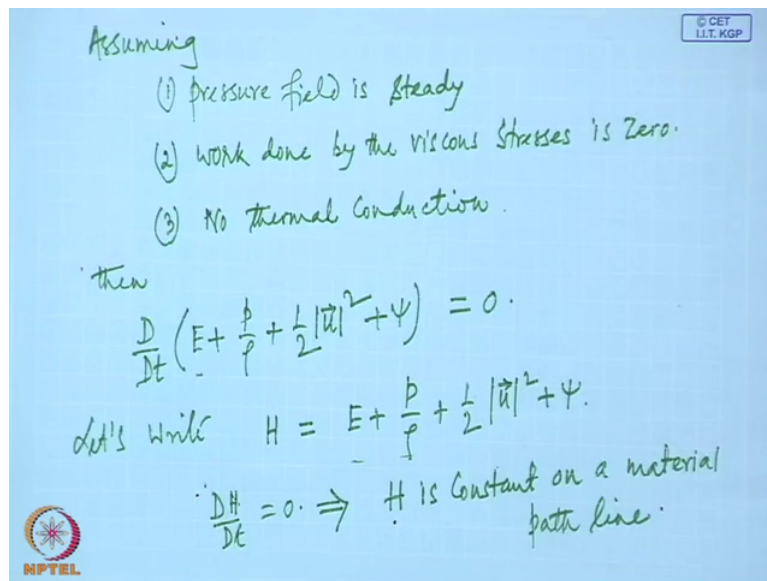 © CET
I.I.T. KGP
Assuming
(1) pressure field is steady
(2) work done by the viscous stresses is zero.
(3) No thermal conduction.
then
D/Dt (E + p/ρ + 1/2 |u⃗|² + Ψ) = 0.
Let's write H = E + p/ρ + 1/2 |u⃗|² + Ψ.
∴ DH/Dt = 0. ⇒ H is constant on a material
path line.
NPTEL